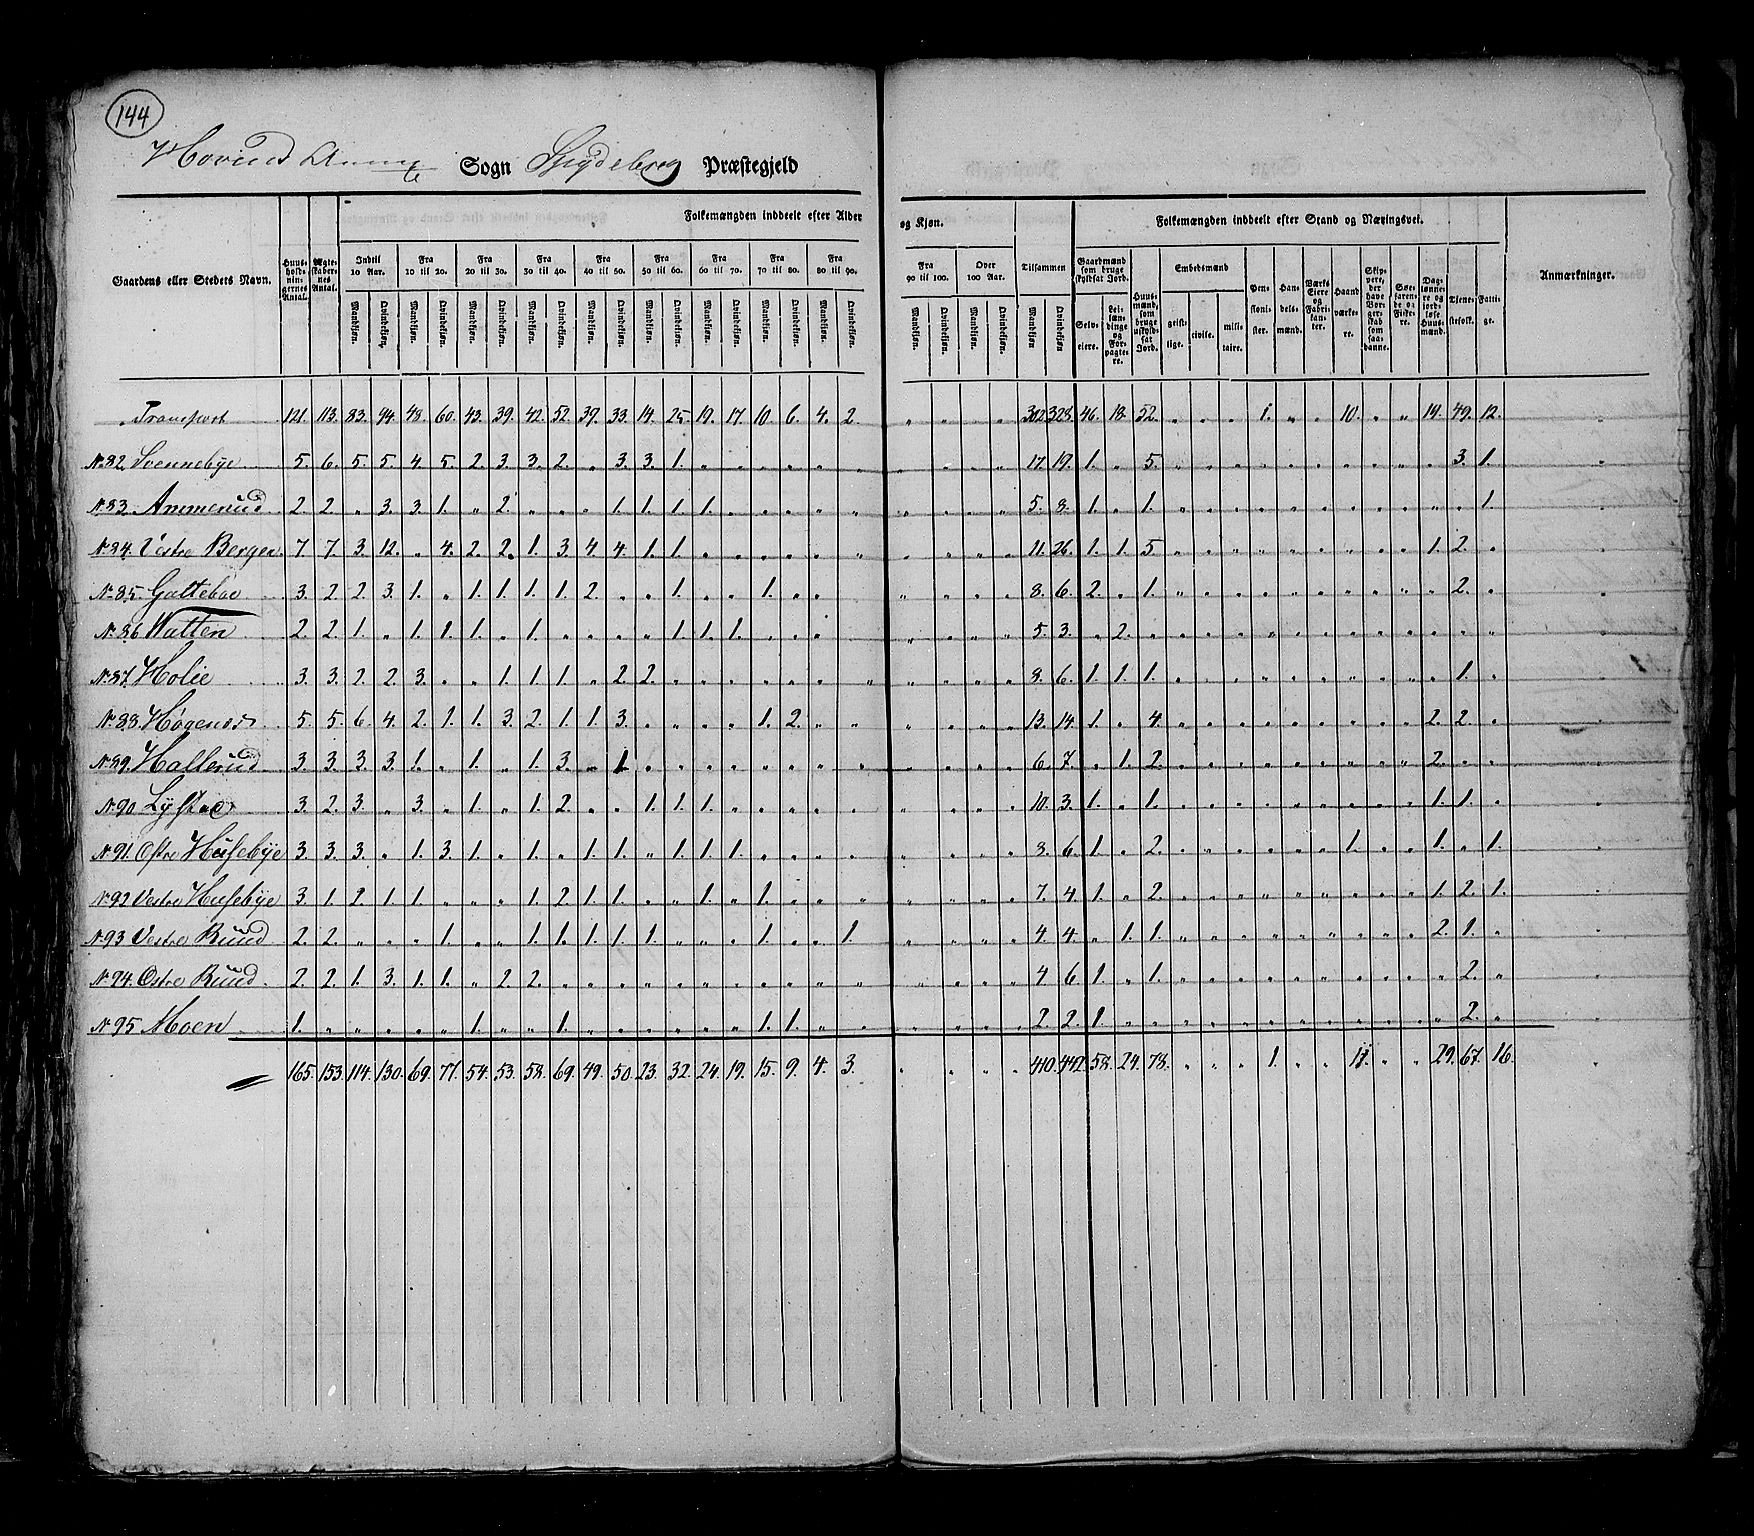 144
Hovind Annex Sogn Spydeberg Præstegjeld
Folkemængden inddeelt efter Alder og Kjøn. Folkemængden inddeelt efter Stand og Næringsvei.
Gaardens eller Stedets Navn. Huus-holdnin-gernes Antal. Ægte-skaber-nes Antal. Indtil 10 Aar. Fra 10 til 20. Fra 20 til 30. Fra 30 til 40. Fra 40 til 50. Fra 50 til 60. Fra 60 til 70. Fra 70 til 80. Fra 80 til 90. Fra 90 til 100. Over 100 Aar. Tilsammen Gaardmænd som bruge skyldsat Jord. Huus-mænd, som bruge uskyldsat Jord. Embedsmænd Pen-sioni-ster. Han-dels-mænd. Værks Eiere og Fabri-kan-ter. Haand-værke-re. Skip-pere, der have Bor-ger-skab som saa-danne. Søe-farende og Fiske-re. Dag-lønne-re og jord-løse Huus-mænd. Tjene-stefolk. Fatti-ge. Anmærkninger.
Mandkjøn. Qvindekjøn. Mandkjøn. Qvindekjøn. Mandkjøn. Qvindekjøn. Mandkjøn. Qvindekjøn. Mandkjøn. Qvindekjøn. Mandkjøn. Qvindekjøn. Mandkjøn. Qvindekjøn. Mandkjøn. Qvindekjøn. Mandkjøn. Qvindekjøn. Mandkjøn. Qvindekjøn. Mandkjøn. Qvindekjøn. Mandkjøn Qvindekjøn Selv-eiere. Lei-læn-dinge og For-pagte-re. geist-lige. civile. mili-taire.
Transport 121. 113. 83. 94. 48. 60. 43. 39. 42. 52. 39. 33. 14. 25. 19. 17. 10. 6. 4. 2. " " " " 302. 328. 46. 18. 52. " " " 1. " " 10. " " 14. 49. 12.
No 82. Svennebye 5. 6. 5. 5. 4. 5. 2. 3. 3. 2. " 3. 3. 1. " " " " " " " " " " 17. 19. 1. " 5. " " " " " " " " " " 3. 1.
No 83. Ammerud 2. 2. " 3. 3. 1. " 2. " " " 1. 1. 1. 1. " " " " " " " " " 5. 8. 1. " 1. " " " " " " " " " " " 1.
No 84. Vestre Bergen 7. 7. 3. 12. " 4. 2. 2. 1. 3. 4. 4. 1. 1. " " " " " " " " " " 11. 26. 1. 1. 5 " " " " " " " " " 1. 2. "
No 85. Galteboe 3. 2. 2. 3. 1. " 1. 1. 1. 1. 2. " " 1. " " 1. " " " " " " 8. 6. 2. " 1. " " " " " " " " " " 2. "
No 86 Watten 2. 2. 1. " 1. 1. 1. " 1. " " " " 1. 1. 1. " " " " " " " 5. 3. " 2. " " " " " " " " " " " " "
No 87. Holie 3. 3. 2. 2. 3. " " 1. 1. 1. " 2. 2. " " " " " " " " " " " 8. 6. 1. 1. 1. " " " " " " " " " " 1. "
No 88. Høgenes 5. 5. 6. 4. 2. 1. 1. 3. 2. 1. 1. 3. " " " " 1. 2. " " " " " " 13. 14. 1. " 4. " " " " " " " " " 2. 2. "
No 89. Hallerud 3. 3. 3. 3. 1. " 1. " 1. 3. " 1. " " " " " " " " " " " " 6. 7. " 1. 2. " " " " " " " " " 2. " "
No 90. Lystad 3. 2. 3. " 3. " 1. " 1. 2. " " 1. 1. 1. " " " " " " " " " 10. 3. 1. " 1. " " " " " " " " " 1. 1. "
No 91. Østre Husebye 3. 3. 3. " 1. 3. 1. " 1. " 1. 1. " 1. 1. 1. " " " " " " " " 8. 6. 1. " 2. " " " " " " 1. " " 1. " 1.
No 92 Vestre Husebye 3. 1. 2. 1. 1. " " " 1. 2. 1. 1. " " 1. " 1. " " " " " " " 7. 4. 1. " 2. " " " " " " " " " 1. 2. 1.
No 93 Vestre Ruud 2. 2. " " " 1. " " 1. 1. 1. 1. 1. " " " 1. " " 1. " " " " 4 4. " 1. 1. " " " " " " " " " 2. 1. "
No 94. Østre Ruud 2. 2. 1. 3. 1. 1. " 2. 2. " " " " " " " " " " " " " " " 4 6. 1. " 1. " " " " " " " " " " 2. "
No 95 Moen 1. " " " " " 1. " " 1. " " " " " " 1. 1. " " " " " " 2. 2. 1. " " " " " " " " " " " " 2. "
165. 153. 114. 130. 69. 77. 54. 53. 58. 69. 49. 50. 23. 32. 24. 19. 15. 9. 4. 3. " " " " 410. 442. 58. 24. 78. " " " 1. " " 11. " " 29. 67. 16.